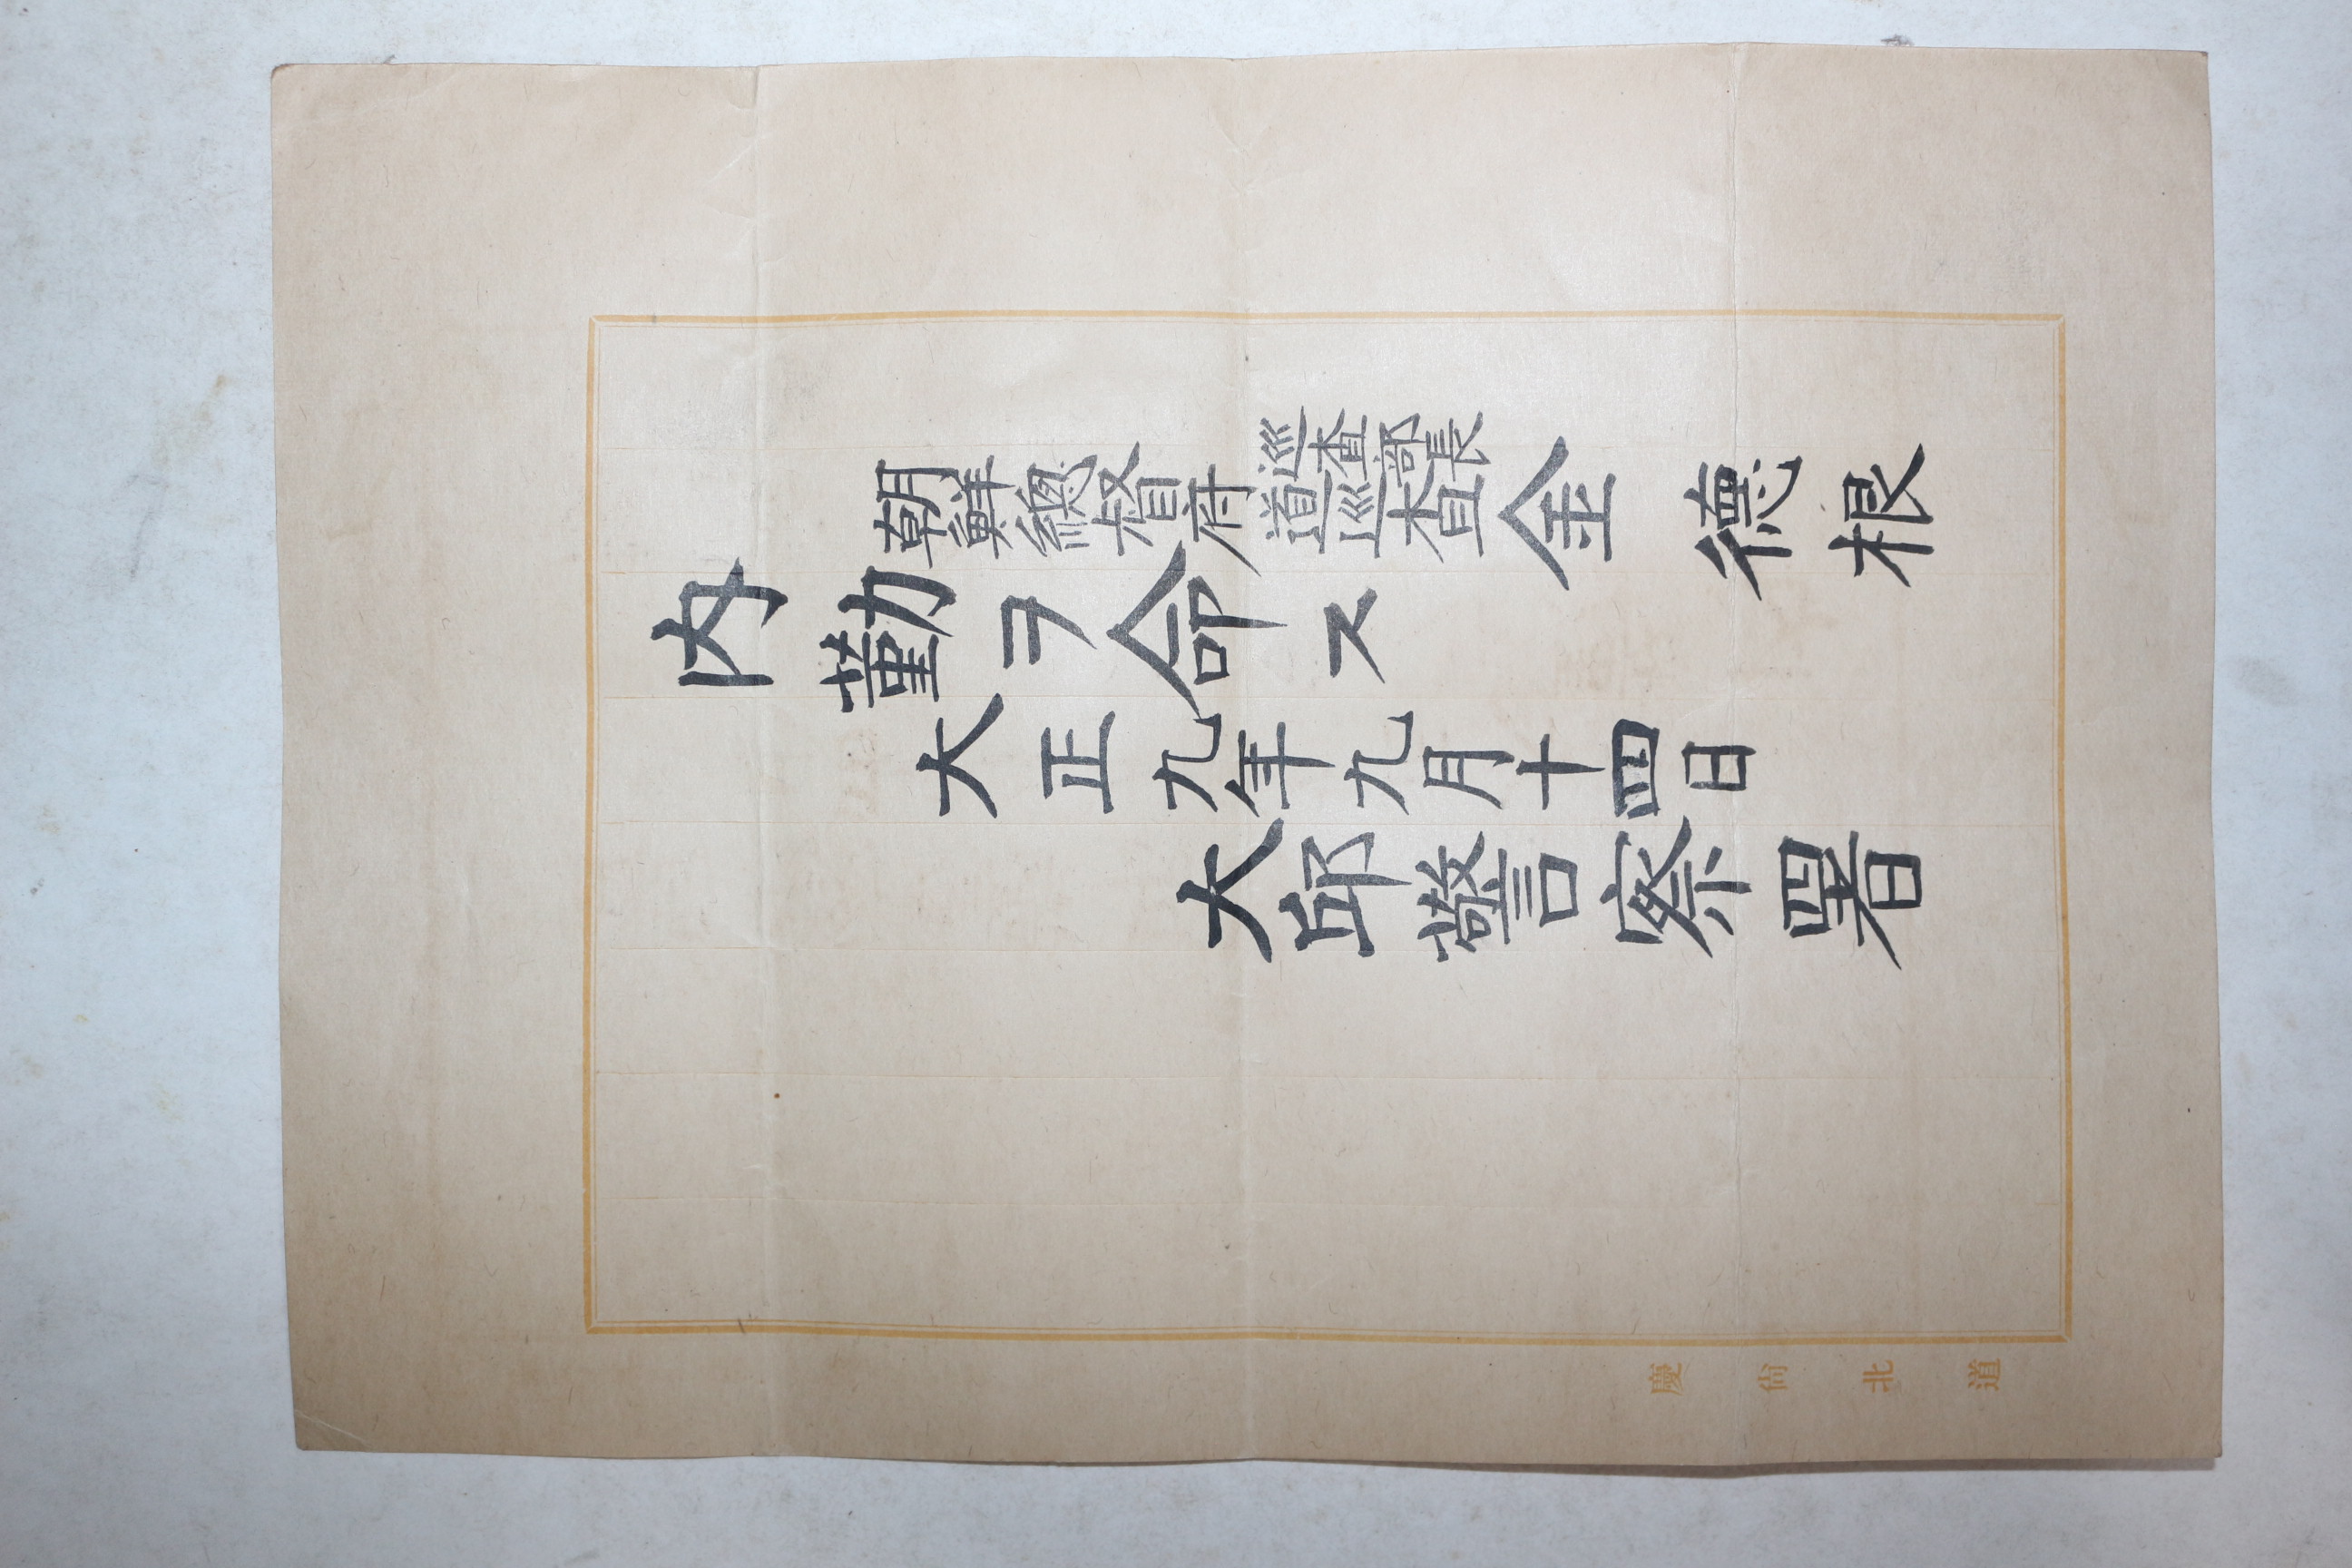 朝鮮總督府巡査部長道巡査金德根
内勤ヲ命ス
大正九年九月十四日
大邱警察署
慶尙北道